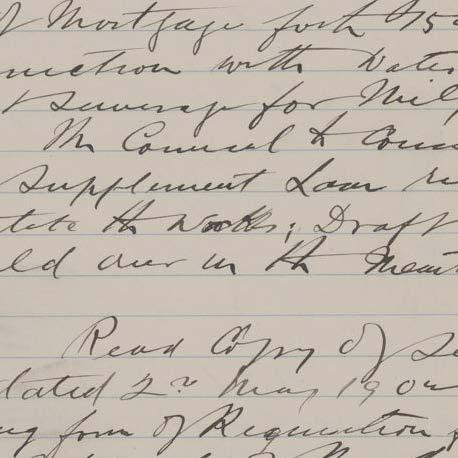 of Mortgage for the
nection with Water
Sewerage for Mil
The Council to
Supplement Loan
the Works; Draft
ld over in the Mean
Read Copy of Le
dated 2nd May 190
ing form of Requisition